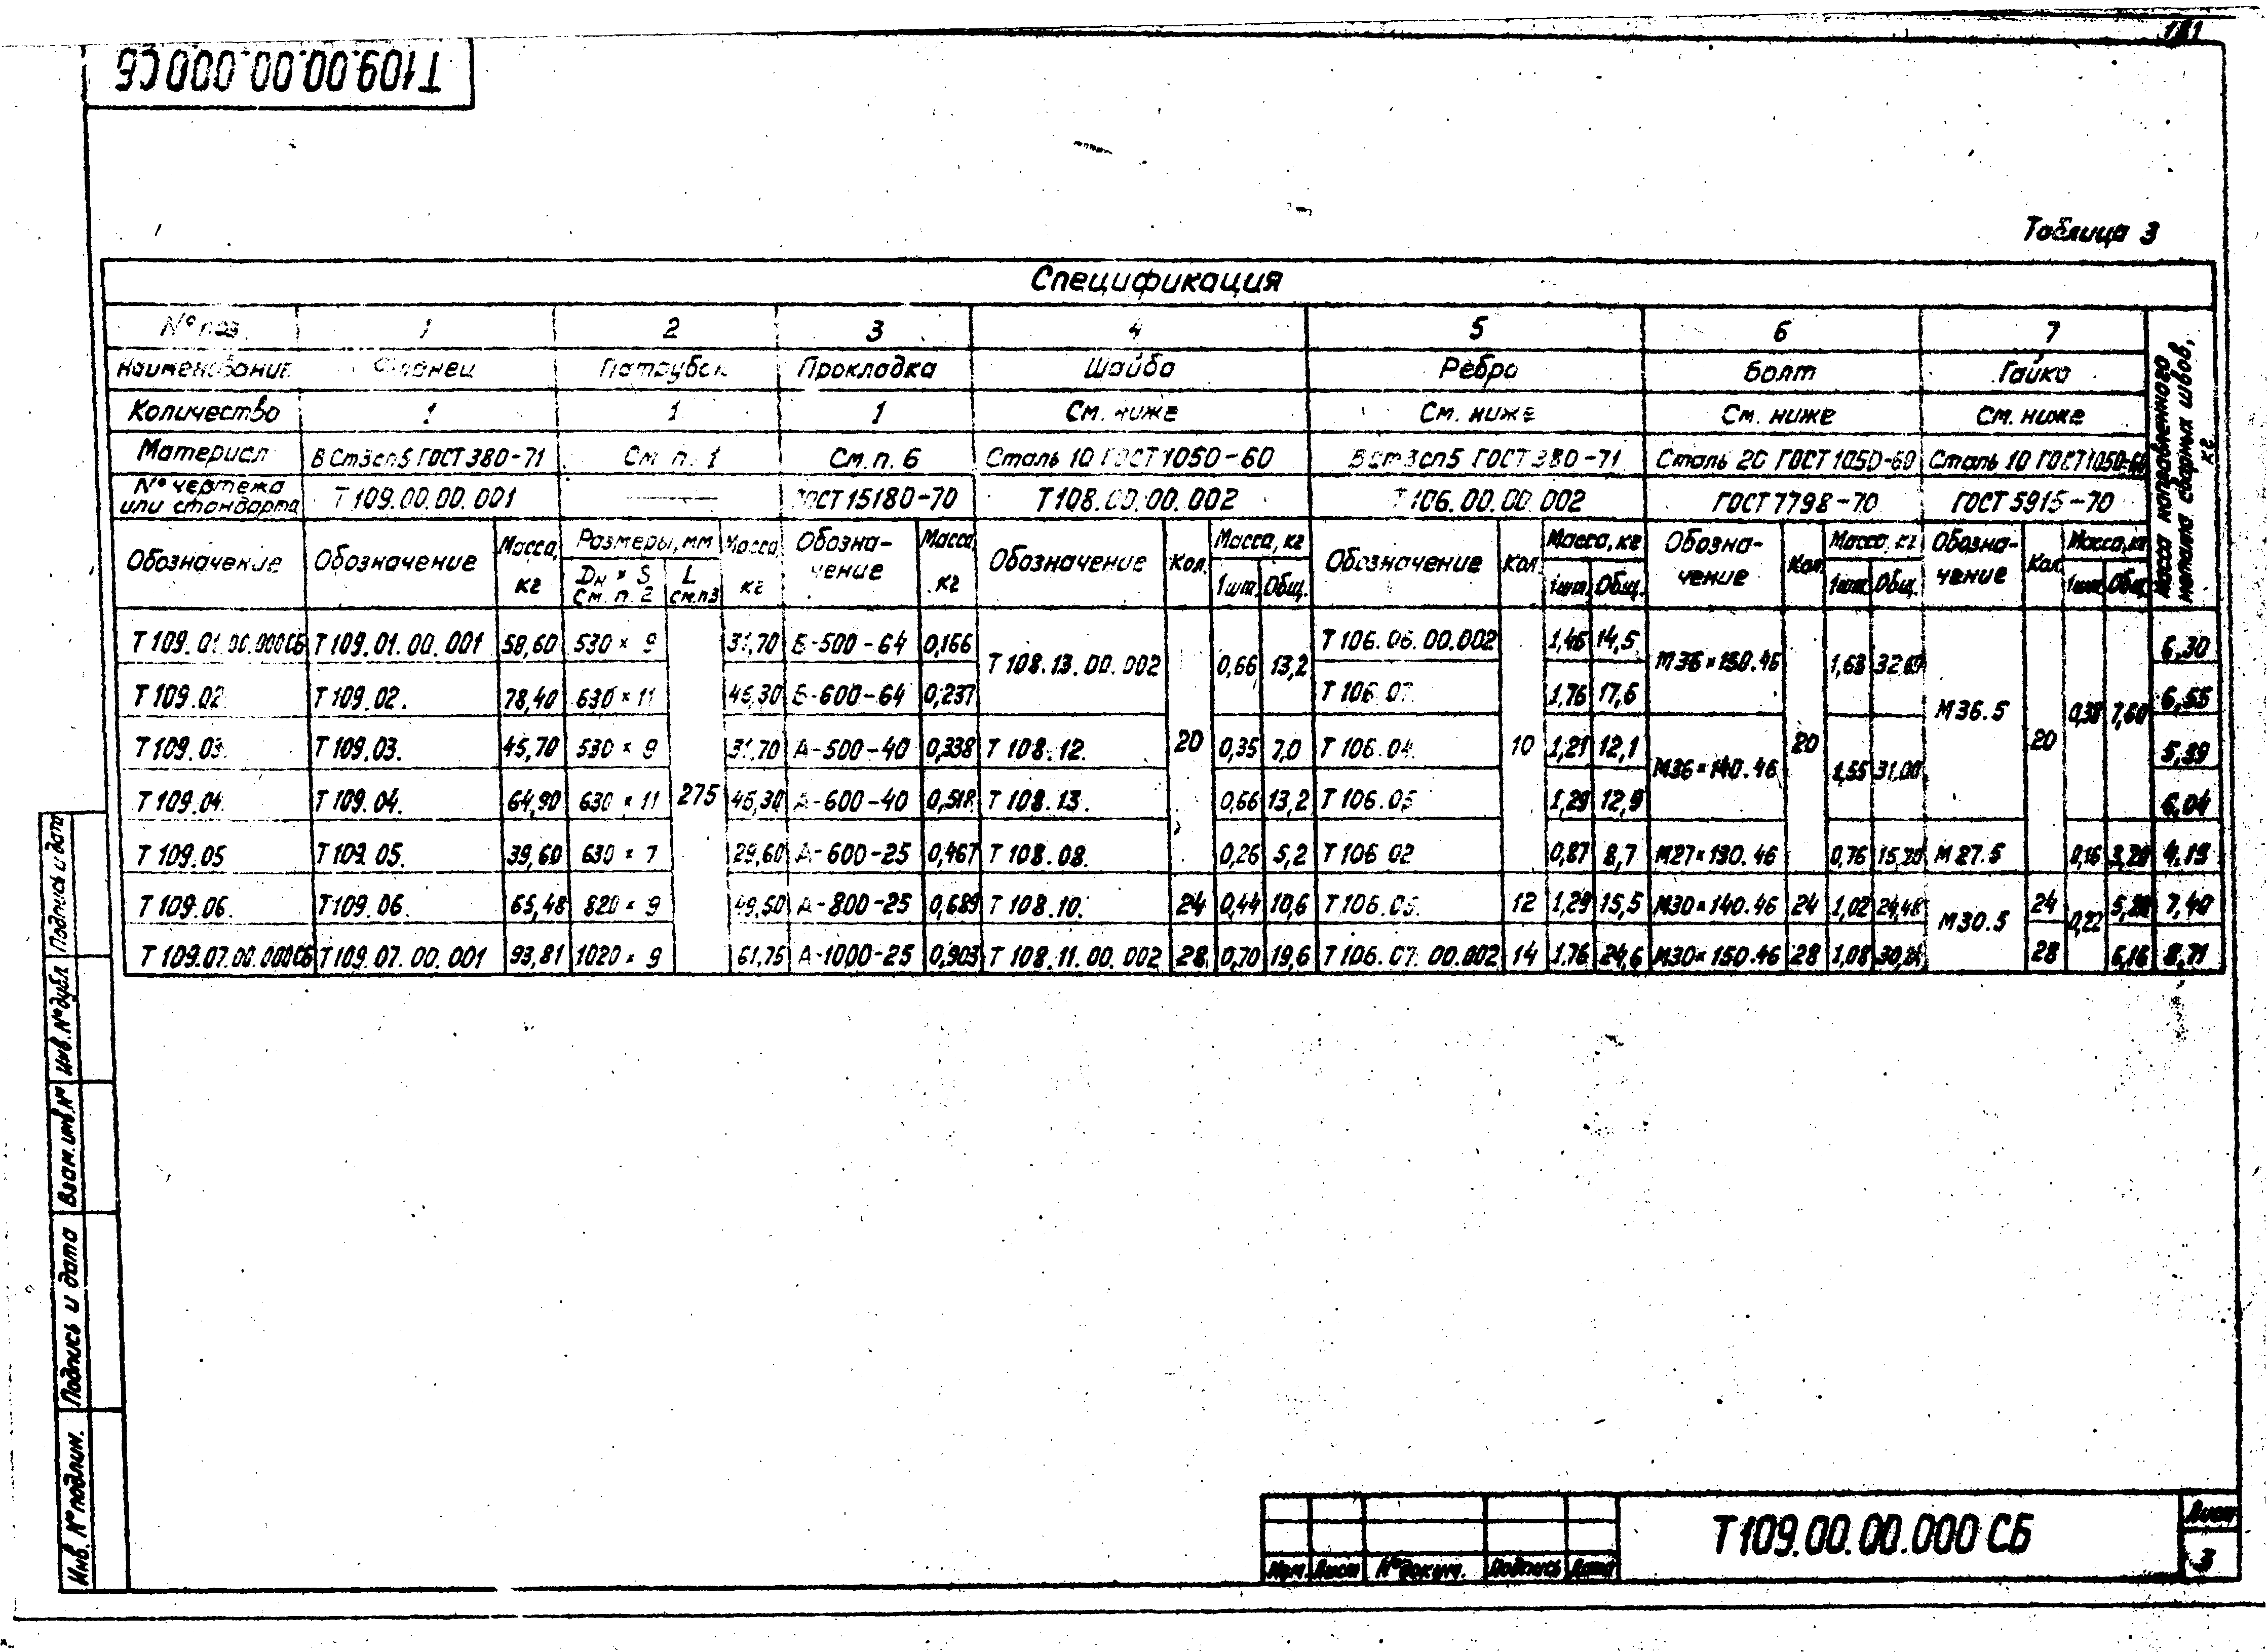 181
Т109.00.00.000 СБ
Таблица 3
Спецификация
№ поз. 1 2 3 4 5 6 7 Масса наплавленного металла сварных швов, кг
Наименование Фланец Патрубок Прокладка Шайба Ребро Болт Гайка
Количество 1 1 1 См. ниже См. ниже См. ниже См. ниже
Материал ВСт3сп5 ГОСТ 380-71 См. п. 1 См. п. 6 Сталь 10 ГОСТ 1050-60 ВСт3сп5 ГОСТ 380-71 Сталь 20 ГОСТ 1050-60 Сталь 10 ГОСТ 1050-60
№ чертежа или стандарта Т109.00.00.001 ——— ГОСТ 15180-70 Т108.00.00.002 Т106.00.00.002 ГОСТ 7798-70 ГОСТ 5915-70
Обозначение Обозначение Масса, кг Размеры, мм Dн × S См. п. 2 L см.п3 Масса кг Обозначение Масса кг Обозначение Кол. Масса, кг 1шт. Общ. Обозначение Кол. Масса, кг 1шт. Общ. Обозначение Кол. Масса, кг 1шт. Общ. Обозначение Кол. Масса, кг 1шт. Общ.
Т109.01.00.000СБ Т109.01.00.001 58,60 530 × 9 31,70 Б-500-64 0,166 Т108.13.00.002 0,66 13,2 Т106.06.00.002 1,45 14,5 М36×150.46 1,63 6,30
Т109.02. Т109.02. 78,40 630 × 11 46,30 Б-600-64 0,237 Т106.07. 1,76 17,6 М36.5 0,38 7,60 6,55
Т109.03. Т109.03. 45,70 530 × 9 31,70 А-500-40 0,338 Т108.12. 20 0,35 7,0 Т106.04. 10 1,21 12,1 М36×140.46 20 1,55 31,00 20 5,39
Т109.04. Т109.04. 64,90 630 × 11 275 46,30 А-600-40 0,518 Т108.13. 0,66 13,2 Т106.05. 1,29 12,9 6,04
Т109.05 Т109.05. 39,60 630 × 7 29,60 А-600-25 0,467 Т108.08. 0,26 5,2 Т106.02 0,87 8,7 М27×130.46 0,76 15,20 М27.5 0,16 3,20 4,19
Т109.06. Т109.06. 65,48 820 × 9 49,50 А-800-25 0,689 Т108.10. 24 0,44 10,6 Т106.05. 12 1,29 15,5 М30×140.46 24 1,02 24,48 М30.5 24 0,22 5,28 7,40
Т109.07.00.000СБ Т109.07.00.001 93,81 1020 × 9 61,75 А-1000-25 0,903 Т108.11.00.002 28 0,70 19,6 Т106.07.00.002 14 1,76 24,6 М30×150.46 28 1,08 30,24 28 6,16 8,71
Подпись и дата
Инв. № дубл
Взам. инв. №
Подпись и дата
Инв. № подлин.
Изм. Лист № докум. Подпись Дата
Т109.00.00.000 СБ
Лист
3